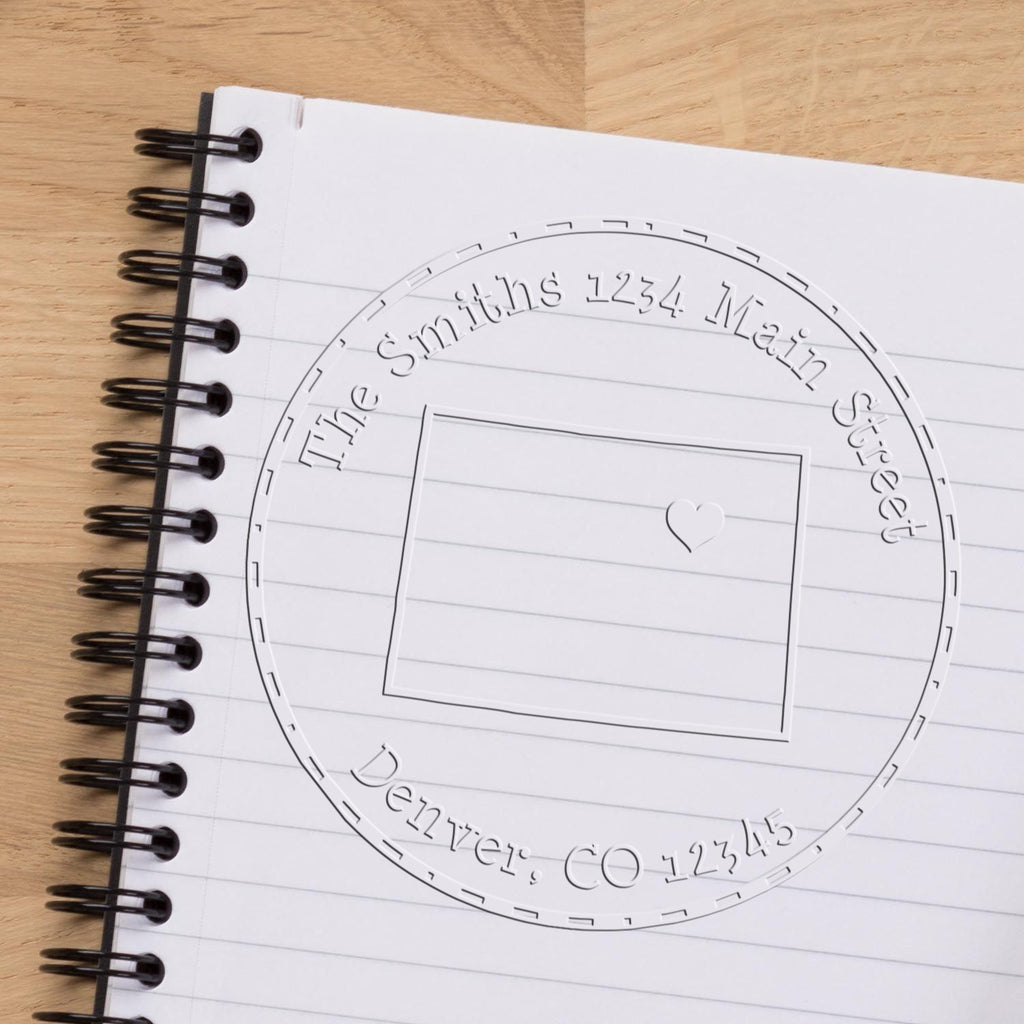 The Smiths 1234 Main Street
Denver, CO 12345